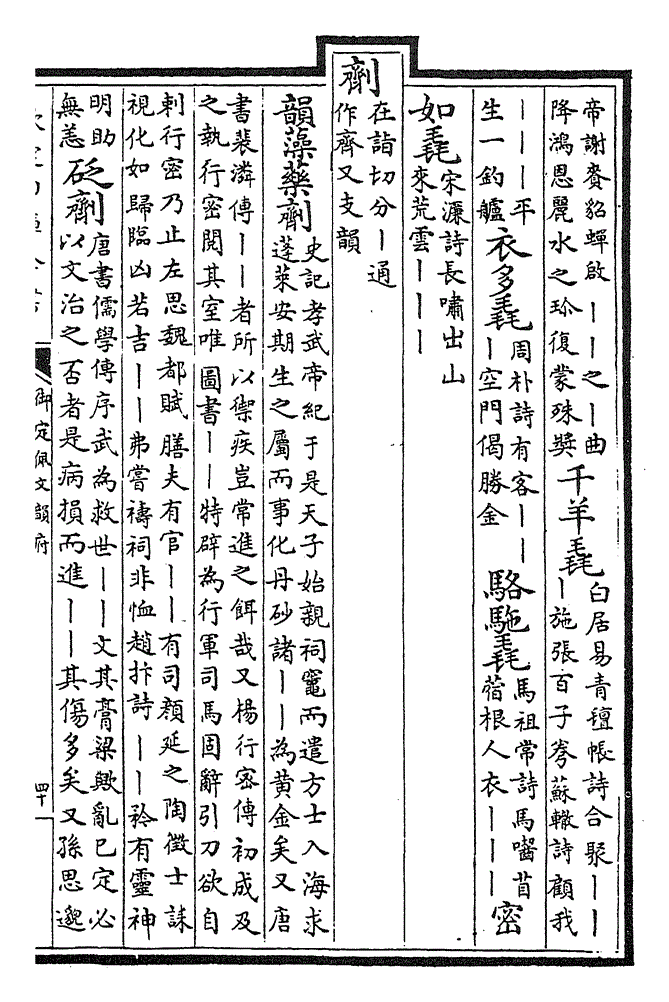 帝謝賚貂蟬啟｜｜之｜曲
降鴻恩麗水之珍復蒙殊奬
千羊毳
白居易青氊帳詩合聚｜｜
｜施張百子弮蘇轍詩顧我
｜｜｜平
生一釣艫
衣多毳
周朴詩有客｜｜
｜空門偈勝金
駱駞毳
馬祖常詩馬囓苜
蓿根人衣｜｜｜
密
如毳
宋濂詩長嘯出山
來荒雲｜｜｜
劑
在詣切分｜通
作齊又支韻
韻藻
藥劑
史記孝武帝紀于是天子始親祠竈而遣方士入海求
蓬萊安期生之屬而事化丹砂諸｜｜為黄金矣又唐
書裴潾傳｜｜者所以禦疾豈常進之餌哉又楊行密傳初成及
之執行密閱其室唯圖書｜｜特辟為行軍司馬固辭引刀欲自
刺行密乃止左思魏都賦膳夫有官｜｜有司顔延之陶徵士誄
視化如歸臨凶若吉｜｜弗嘗禱祠非恤趙抃詩｜｜矜有靈神
明助
無恙
砭劑
唐書儒學傳序武為救世｜｜文其膏粱歟亂已定必
以文治之否者是病損而進｜｜其傷多矣又孫思邈
御定佩文韻府
四十一